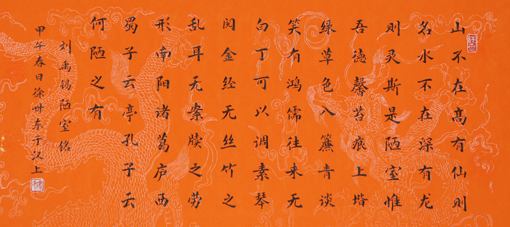 山不在高有仙则
名水不在深有龙
则灵斯是陋室惟
吾德馨苔痕上堦
绿草色入簾青谈
笑有鸿儒往来无
白丁可以调素琴
阅金经无丝竹之
乱耳无案牍之劳
形南阳诸葛庐西
蜀子云亭孔子云
何陋之有
刘禹锡陋室铭
甲午春日徐世东于汉上